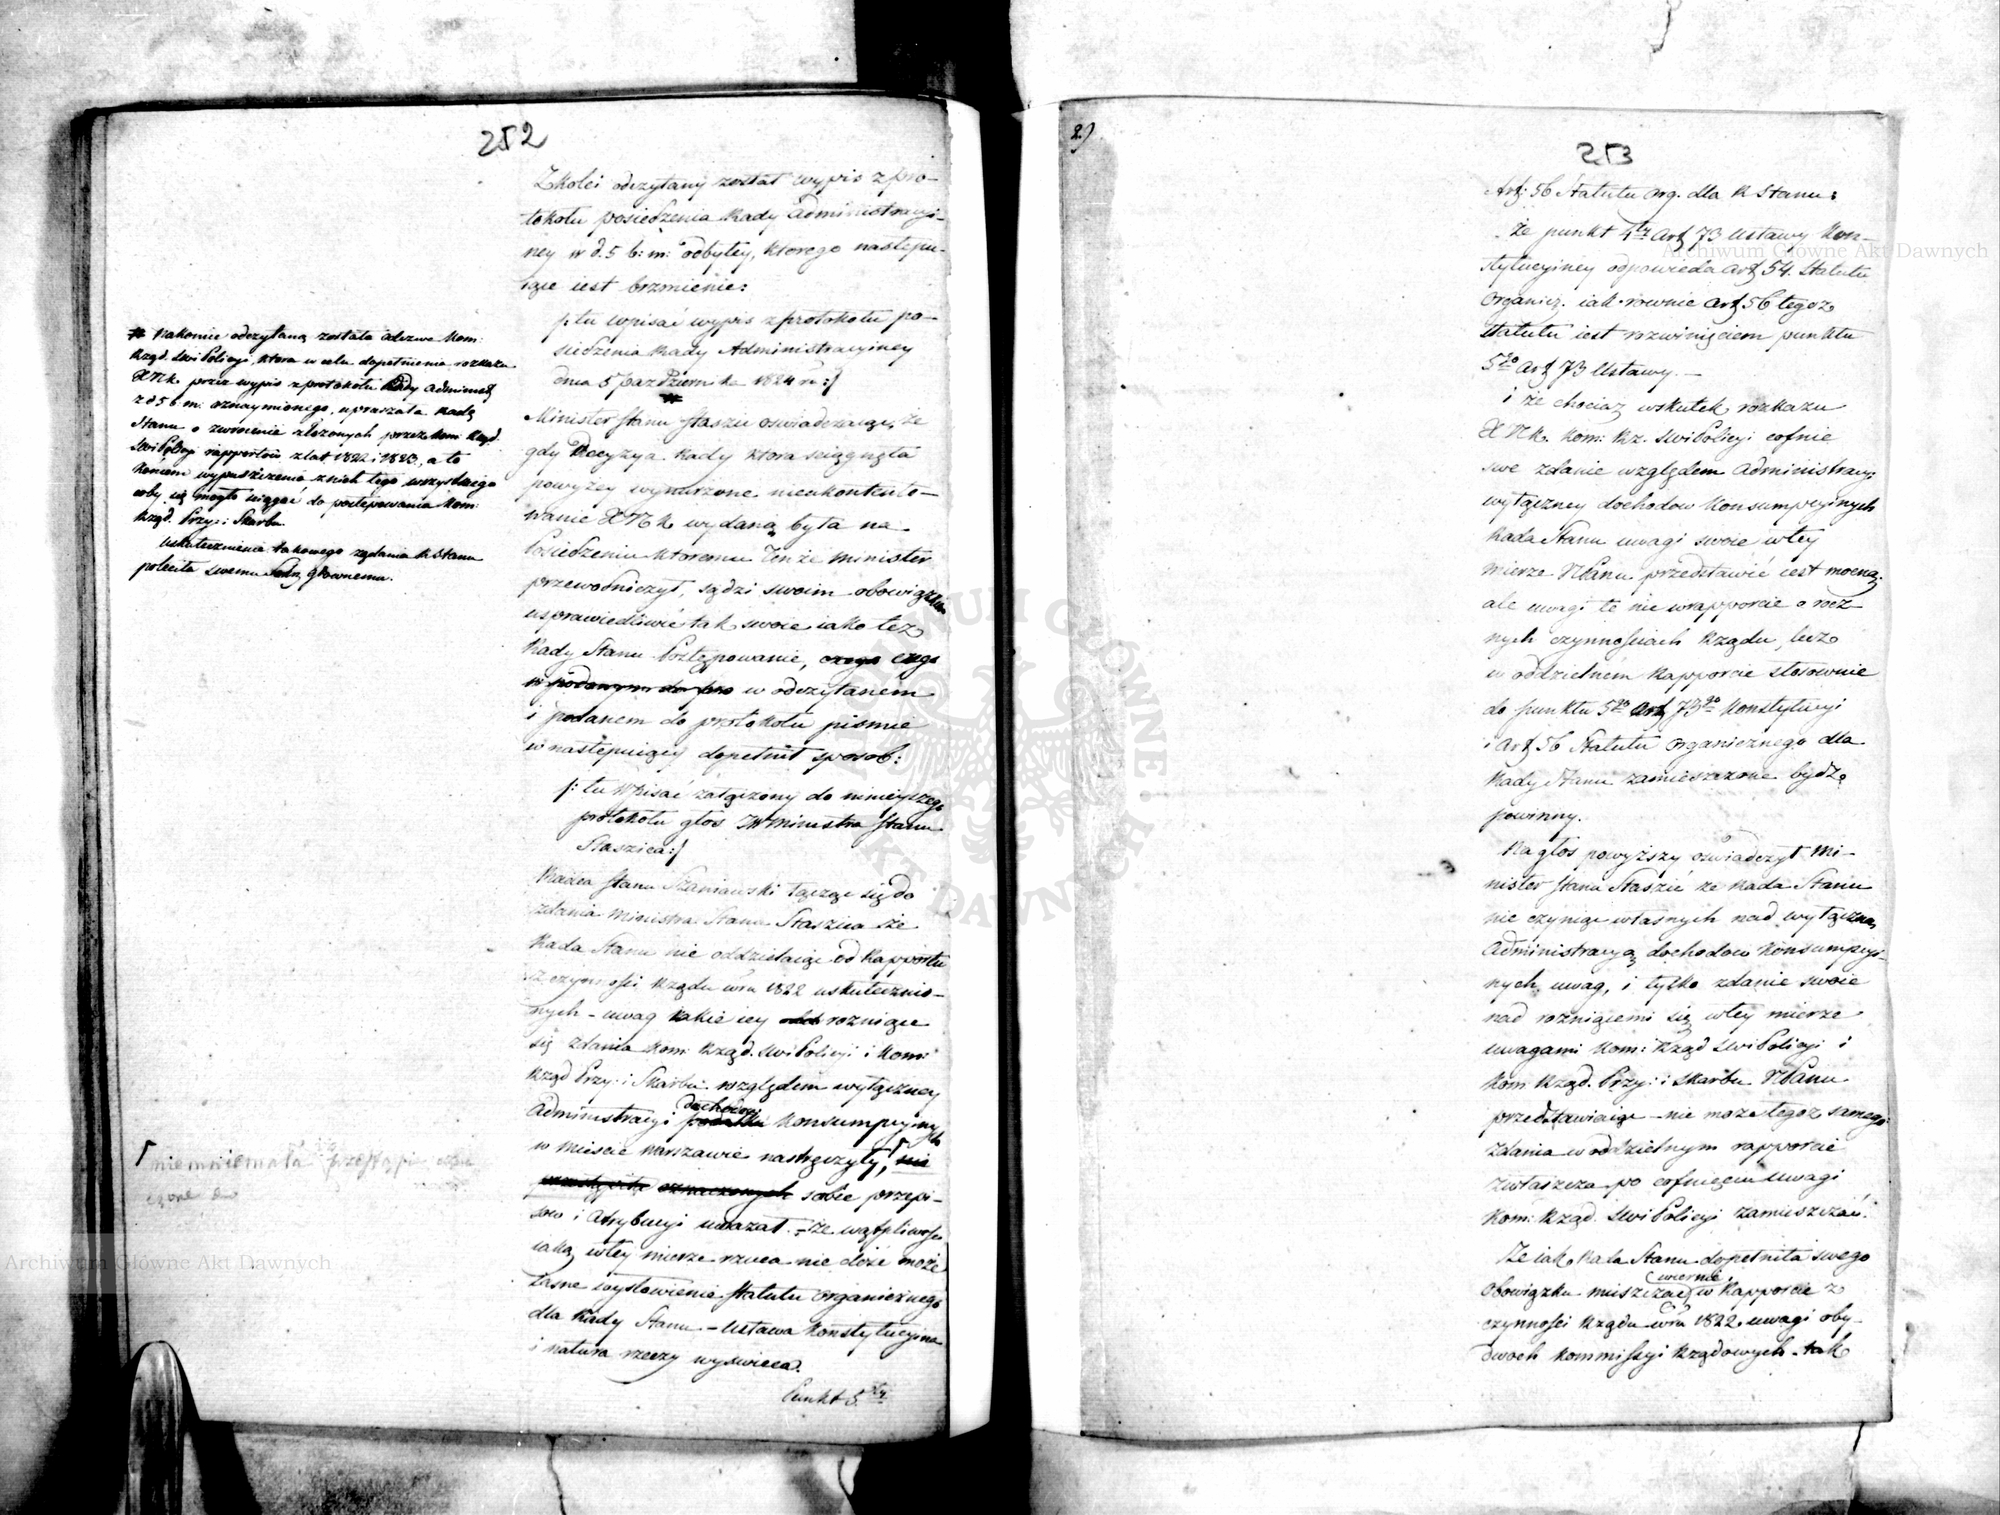 252
Z kolei odczytany został wypis z pro-
tokołu posiedzenia Rady Administracyi-
ney w d. 5 b: m: odbytey, ktorego następu-
iące iest brzmienie:
/: tu wpisać wypis z protokołu po-
siedzenia Rady Administracyiney
dnia 5 października 1824 r :/
#
Minister Stanu Staszic oswiadczaiąc, że
gdy Decyzya Rady ktora sciągnęła
powyżey wynurzone nieukontento-
wanie X N k wydaną była na
Posiedzeniu ktoremu Tenże Minister
przewodniczył, sądzi swoim obowiązkiem
usprawiedliwić tak swoie iako też
Rady Stanu Postępowanie, czego
w podanym do pro w odczytanem
i podanem do protokołu pismie
w następuiący dopełnił sposob:
/: tu Wpisać załączony do ninieyszego
protokołu głos JW Ministra Stanu
Staszica :/
Radca Stanu Szaniawski łącząc się do
zdania Ministra Stanu Staszica że
Rada Stanu nie oddzielaiąc od Rapportu
z czynności Rządu w ru 1822 uskutecznio-
nych - uwag iakie iey rozniące
się zdania Kom: Rząd. S wi Policyi i Kom:
Rząd Przy: i Skarbu względem wyłączney
Administracyi dochodow
podatku Konsumpcyinych
w Mieście Warszawie nastręczyły, nie
oznaczonych sobie przepi-
sow i Atrybucyi uważał. - że wątpliwość
iaką w tey mierze rzuca nie dość może
iasne wysłowienie Statutu organicznego
dla Rady Stanu - Ustawa Konstytucyina
i natura rzeczy wyświeca.
Punkt 5ty
# Nakoniec odczytaną została odezwa Kom:
Rząd. S wi Policyi, ktora w celu dopełnienia rozkazu
X N k. przez wypis z protokołu Rady Administ
z d 5 b. m. oznaymionego, upraszała Radę
Stanu o zwrocenie złożonych przez Kom Rząd.
S wi Policyi rapportow z lat 1822 i 1823, a to
koncem wypuszczenia z nich tego wszystkiego
coby się mogło sciągać do postępowania Kom:
Rząd. Przy: i Skarbu.
Uskutecznienie takowego żądania R Stanu
poleciła swemu Sekr. głownemu.
niemniemała przestąpi
2)
253
Art: 56 Statutu Org. dla R Stanu:
Że punkt 4ty Art 73 Ustawy Kon-
stytucyiney odpowiada Art 54. Statutu
Organicz. iak rownie Art 56 tegoż
Statutu iest rozwinięciem punktu
5go Art 73 Ustawy. -
i że chociaż wskutek rozkazu
X N k. Kom: Rz. S wi Policyi cofnie
swe zdanie względem Administracyi
wyłączney dochodow Konsumpcyinych
Rada Stanu uwagi swoie w tey
mierze NPanu przedstawić iest mocną
ale uwagi te nie w rapporcie o rocz-
nych czynnościach Rządu, lecz
w oddzielnem Rapporcie stosownie
do punktu 5go Art 73go Konstytucyi
i Art 56 Statutu organicznego dla
Rady Stanu zamieszczone bydź
powinny.
Na głos powyższy oświadczył Mi-
nister Stanu Staszic że Rada Stanu
nie czyniąc własnych nad wyłączną
Administracyą dochodow Konsumpcyi-
nych, uwag, i tylko zdanie swoie
nad rozniącemi się w tey mierze
uwagami Kom: Rząd S wi Policyi i
Kom Rząd. Przy: i Skarbu NPanu
przedstawiaiąc - nie może tegoż samego
zdania w oddzielnym rapporcie
zwłaszcza po cofnięciu uwagi
Kom: Rząd. S wi Policyi zamieszczać.
Że iak Rada Stanu dopełniła swego
obowiązku mieszcząc wiernie w Rapporcie z
czynności Rządu w ru 1822 uwagi oby-
dwoch Kommissyi Rządowych - tak
Archiwum Główne Akt Dawnych
Archiwum Główne Akt Dawnych